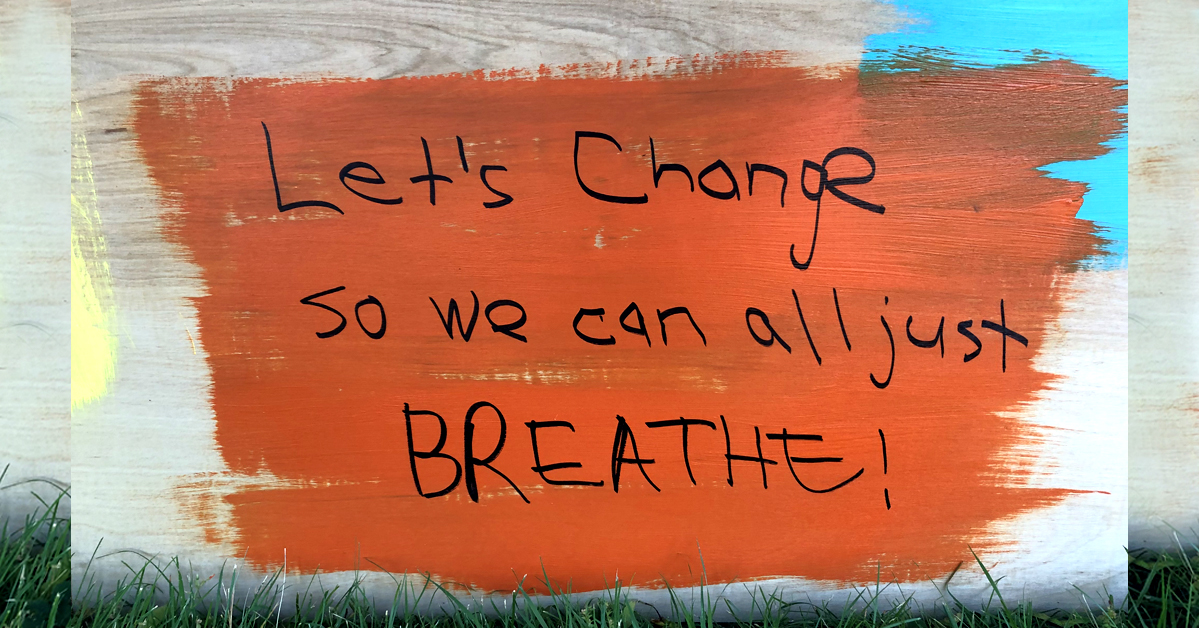 Let's Change
so we can all just
BREATHE!